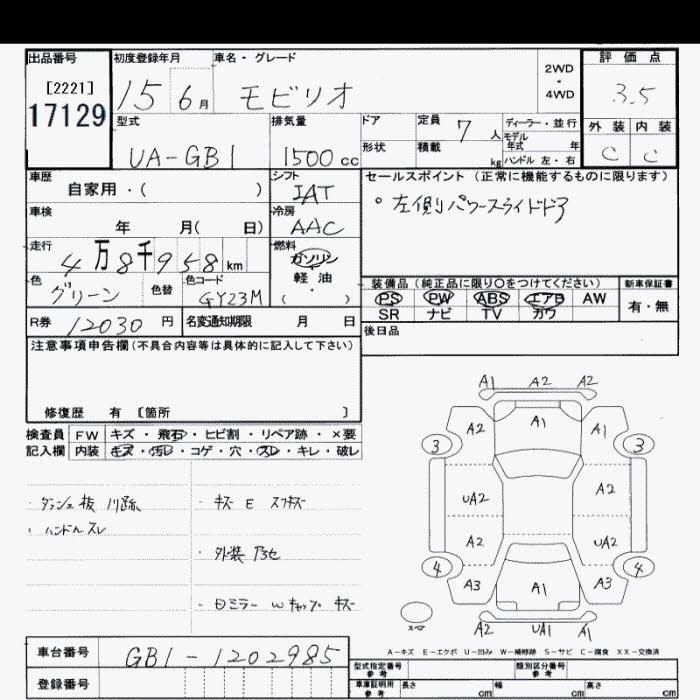 出品番号 初度登録年月 車名・グレード 評価点
[2221] 15 6月 モビリオ 2WD・4WD 3.5
17129
型式 排気量 ドア 定員 7人 ディーラー・並行 外装 内装
UA-GB1 1500cc 形状 積載 kg モデル年式 年 C C
ハンドル 左・右
車歴 シフト セールスポイント (正常に機能するものに限ります)
自家用・( ) IAT 左側パワースライドドア
車検 冷房
年 月( 日) AAC
走行 燃料
4万8千958km ガソリン
軽油
色 色替 色コード ( )
グリーン GY23M
装備品(純正品に限り○をつけてください) 新車保証書
PS PW ABS エアB AW 有・無
SR ナビ TV カワ
R券 12030円 名変通知期限 月 日 後日品
注意事項申告欄(不具合内容等は具体的に記入して下さい)
修復歴 有 [箇所 ]
検査員 FW キズ・飛石・ヒビ割・リペア跡・×要
記入欄 内装 キズ・汚レ・コゲ・穴・スレ・キレ・破レ
・ハンドル スレ
・キズ E スリキズ
・外装
・ミラー Wキャップ キズ
A1 A2 A2
A2 A1 A1
3 3
UA2 A2
A2 UA2
4 4
A3 A1 A3
スペア A2 UA1 A1
A-キズ E-エクボ U-凹み W-補修跡 S-サビ C-腐食 XX-交換済
車台番号 GB1-1202985
登録番号
型式指定番号 参考 類別区分番号 参考
車庫証明用 参考 長さ cm 幅 cm 高さ cm